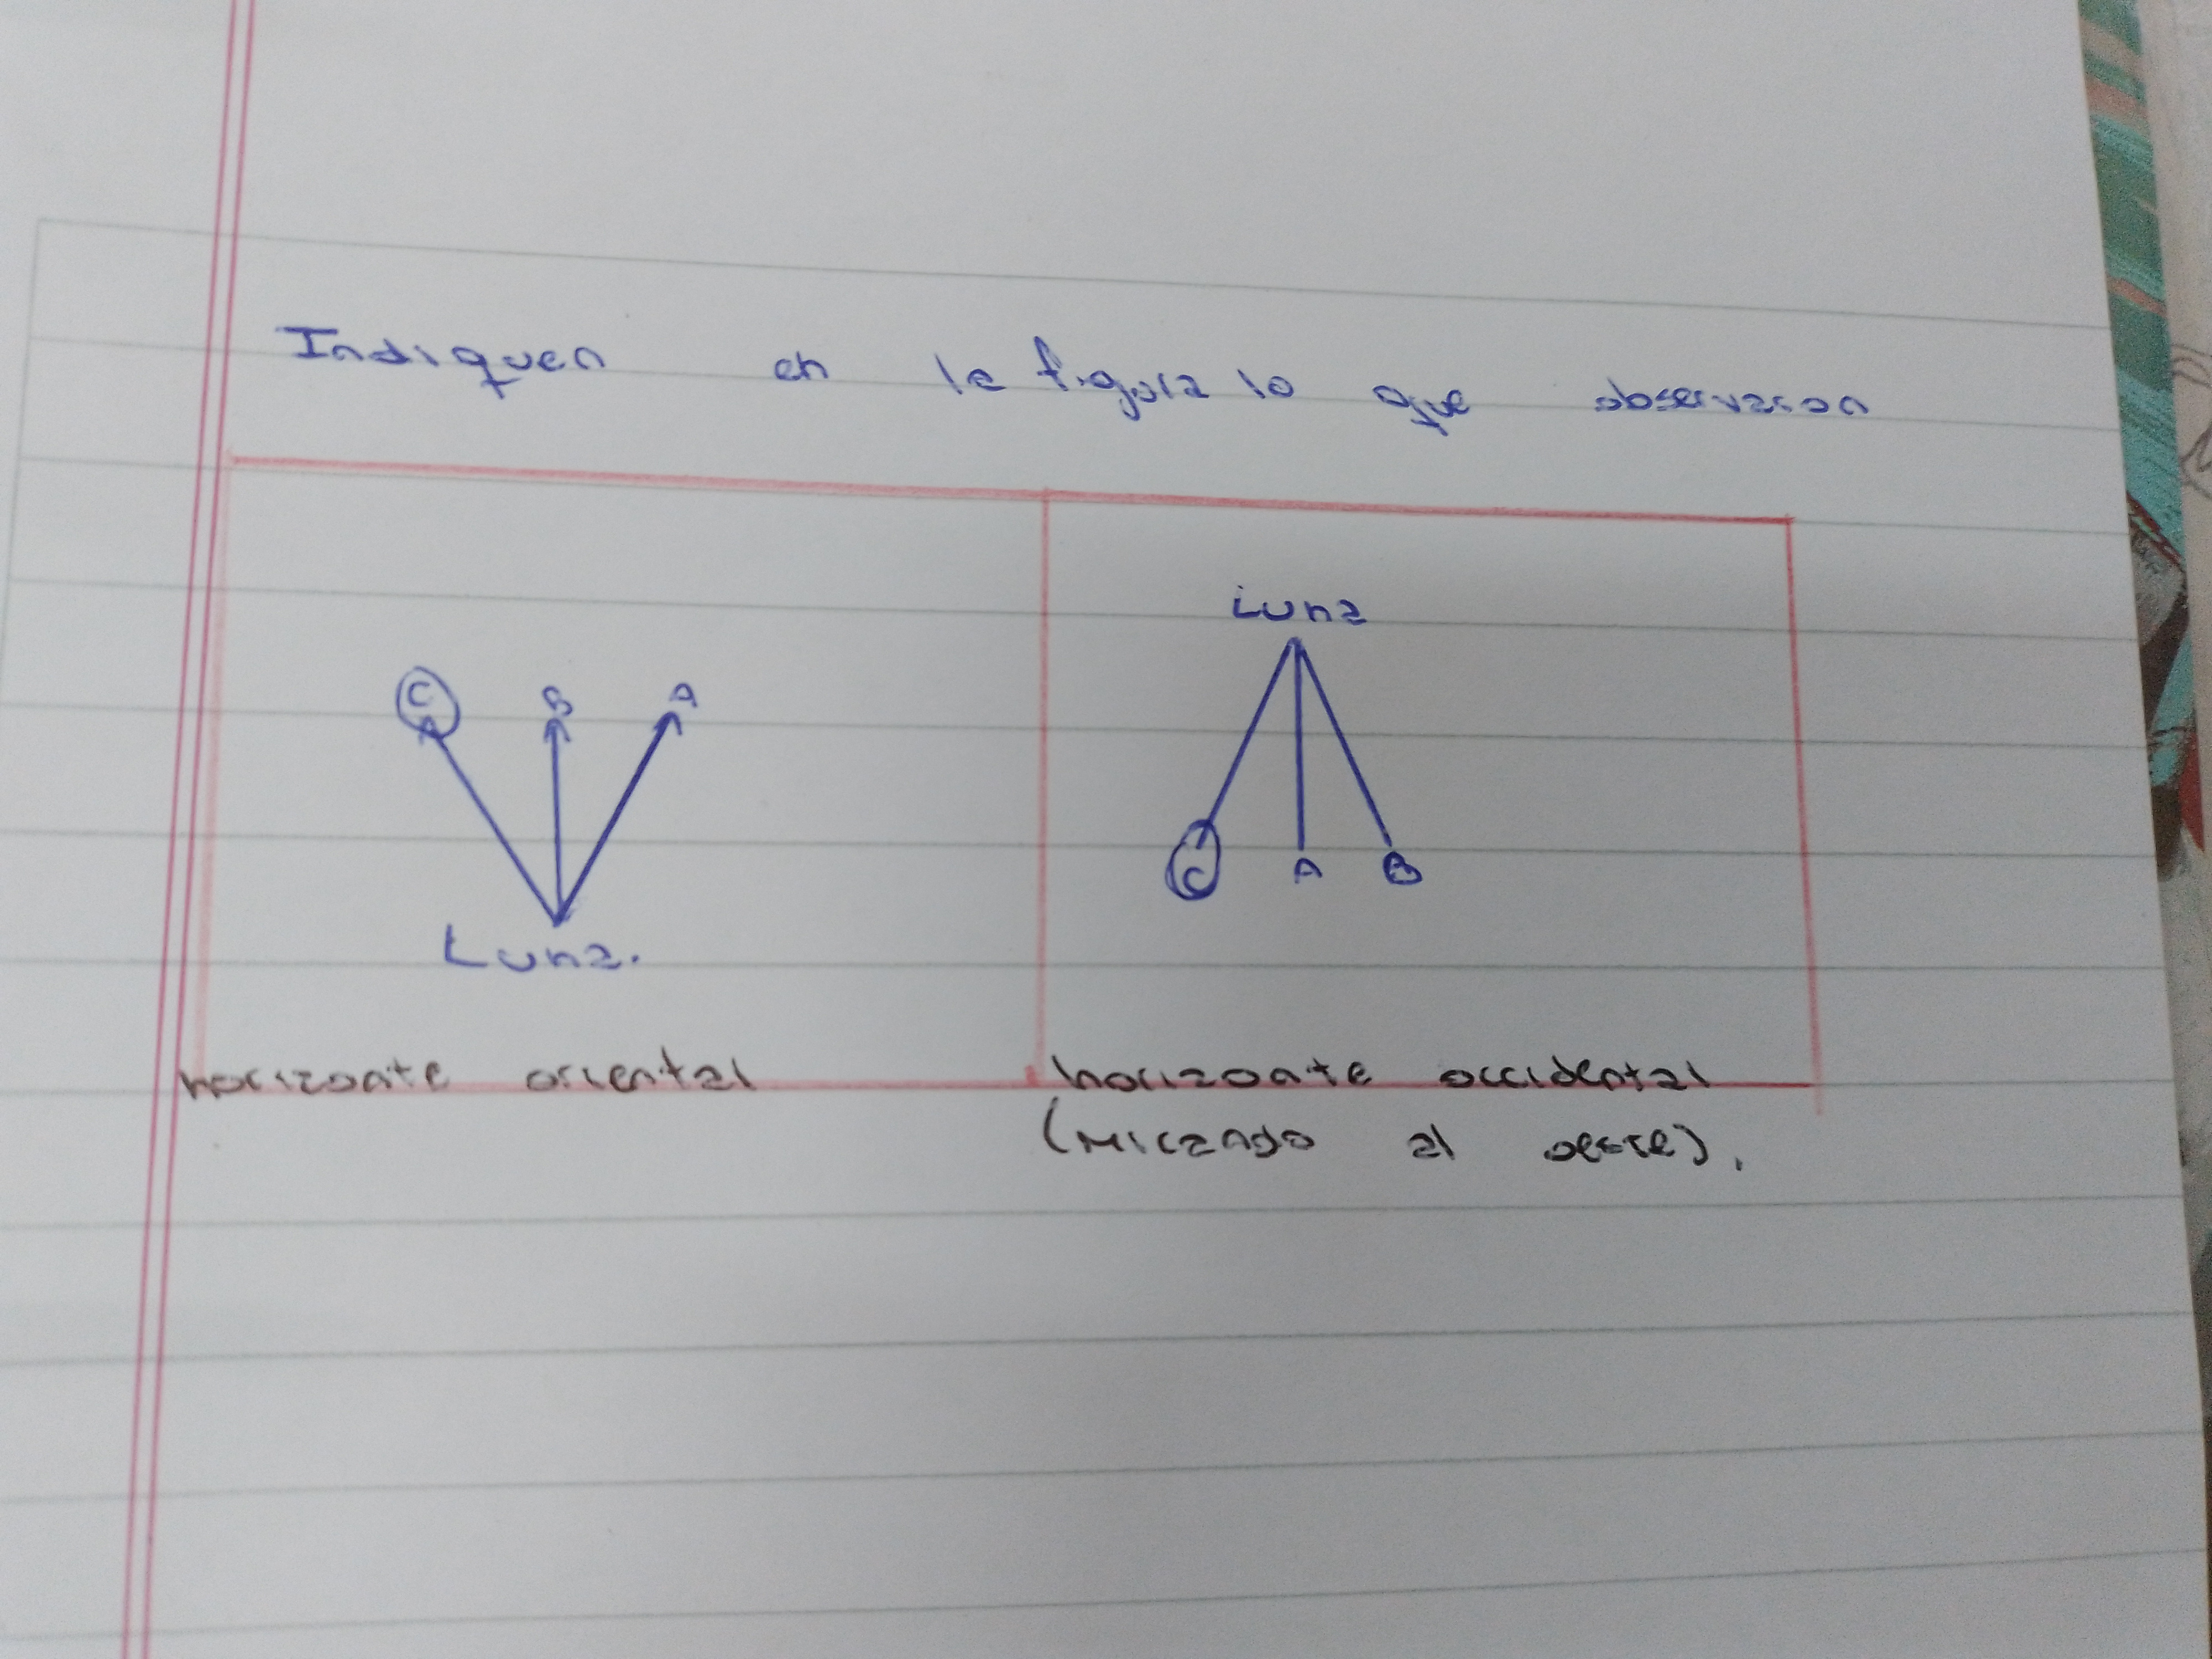 Indiquen en la figura lo que observaron
Luna
C B A
C A B
Luna.
horizonte oriental
horizonte occidental
(mirando al oeste).